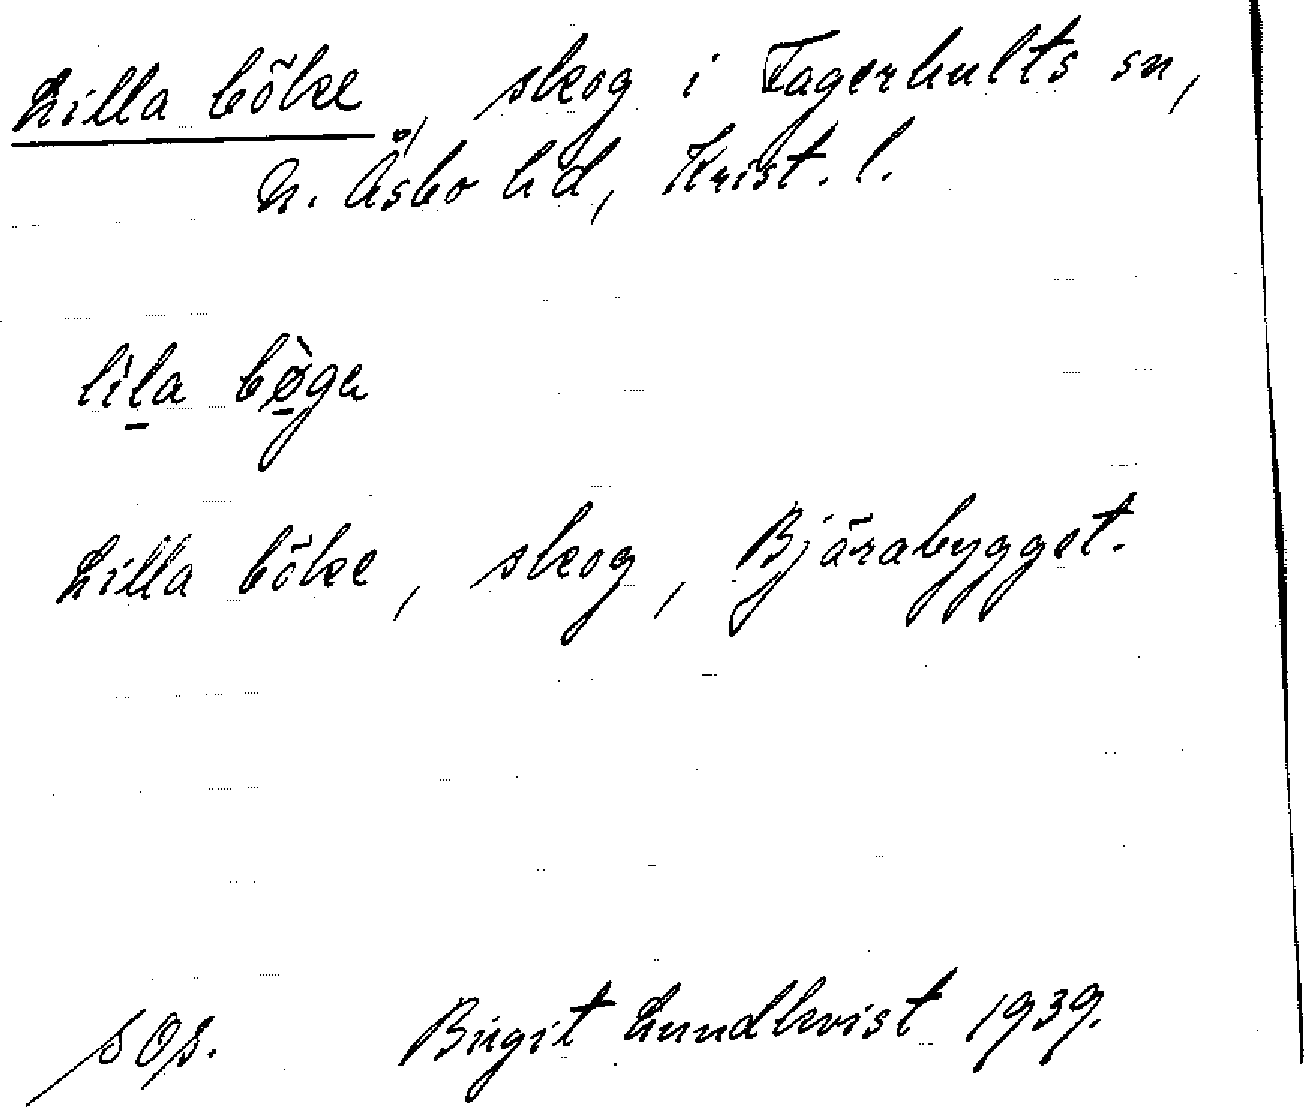 Lilla böke, skog i Fagerhults sn,
N. Åsbo hd, Krist. l.
lila bø̀ga
Lilla böke, skog, Bjärabygget.
Birgit Lundkvist 1939.